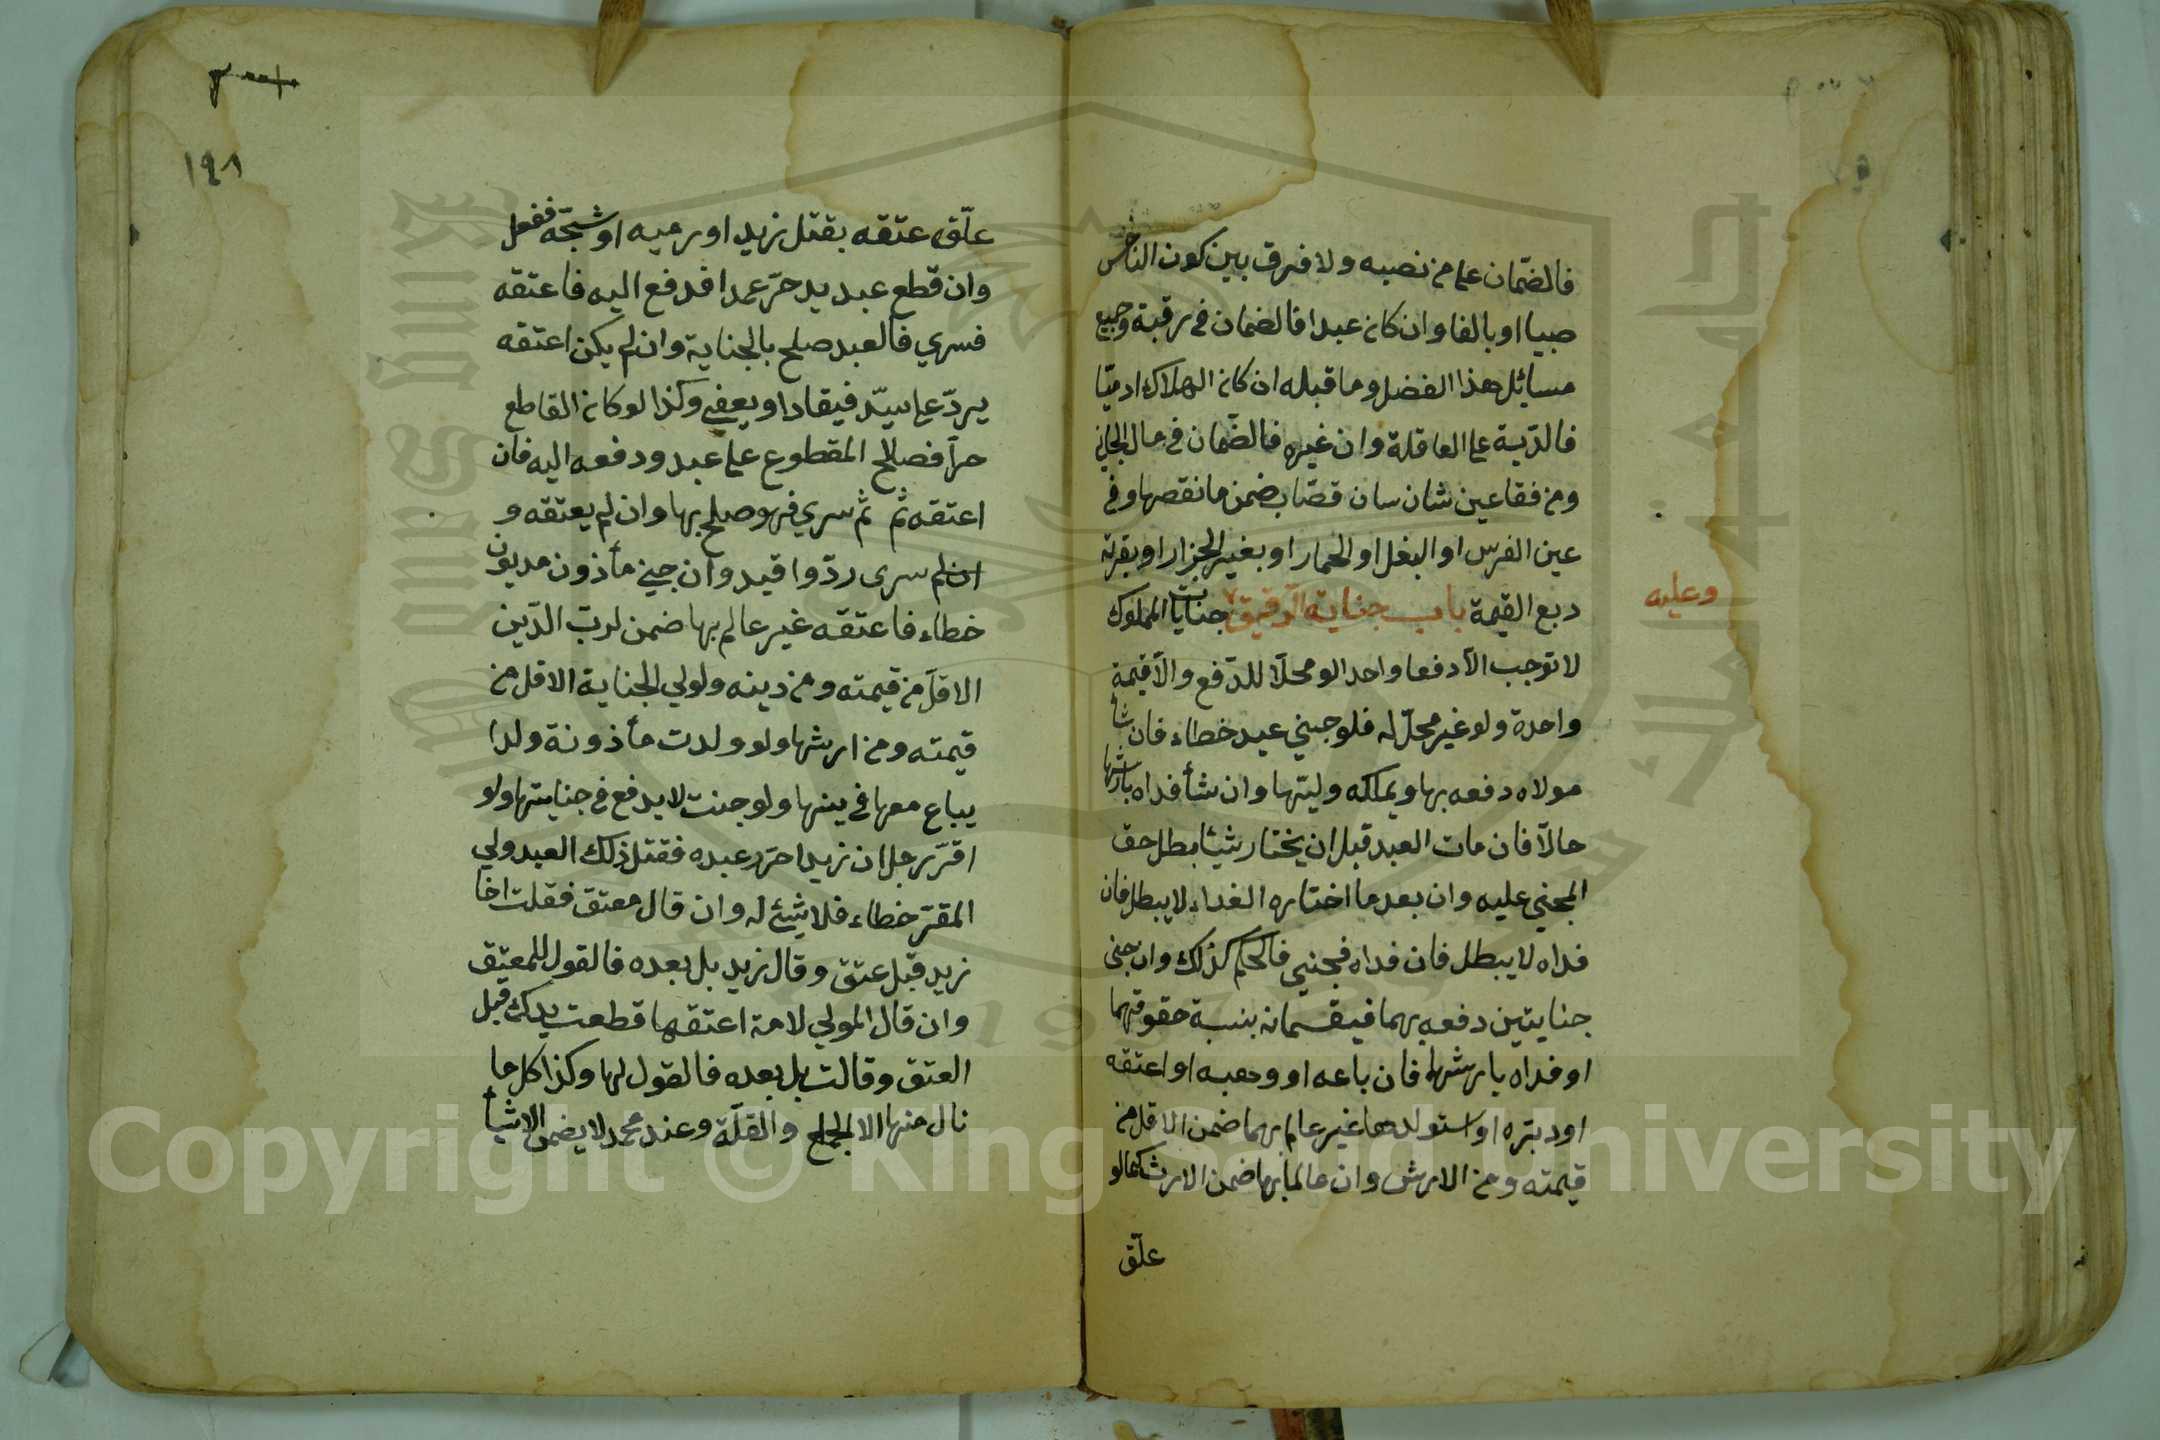 فالضمان على من نصبه ولا فرق بين كون الناخس
صبيا او بالغا وان كان عبدا فالضمان في رقبة وجميع
مسائل هذا الفضل وما قبله ان كان الهلاك ادميّا
فالدّية على العاقلة وان غيره فالضّمان في مال الجاني
ومن فقا عين شاة سان قصّاب ضمن ما نقصها وفي
عين الفرس او البغل او الحمار او بعير الجزار او بقرته
ربع القيمة باب جناية الرقيق جنايات المملوك
وعليه
لا توجب الّا دفعا واحدا لو محلّا للدّفع والّا قيمة
واحدة ولو غير محلّ له فلو جني عبد خطاء فان شأ
مولاه دفعه بها ويملكه وليّها وان شأ فداه بارشها
حالّا فان مات العبد قبل ان يختار شيئا بطل حق
المجني عليه وان بعد ما اختاره الفداء لا يبطل فان
فداه لا يبطل فان فداه فجني فالحكم كذلك وان جني
جنايتين دفعه بهما فيقسمانه بنسبة حقوقهما
او فداه بارشهما فان باعه او وهبه او اعتقه
او دبّره او استولدها غير عالم بهما ضمن الاقل من
قيمته ومن الارش وان عالما بها ضمن الارش كما لو
علّق
١٩٨
علّق عتقه بقتل زيد او رميه او شجّه ففعل
وان قطع عبد يد حرّ عمدا فدفع اليه فاعتقه
فسري فالعبد صلح بالجناية وان لم يكن اعتقه
يردّ على سيّد فيقاد او يعفي وكذا لو كان القاطع
حرّا فصالح المقطوع على عبد ودفعه اليه فان
اعتقه ثم ثم سري فهو صلح بها وان لم يعتقه و
ان لم سرى ردّ واقيد وان جني مأذون مديون
خطاء فاعتقه غير عالم بها ضمن لربّ الدّين
الاقلّ من قيمته ومن دينه ولولي الجناية الاقل من
قيمته ومن ارشها ولو ولدت مأذونة ولدا
يباع معها في دينها ولو جنت لا يدفع في جنايتها ولو
اقرّ رجل ان زيدا حرّر عبده فقتل ذلك العبد ولي
المقرّ خطاء فلا شيئ له وان قال معتق فقلت اخا
زيد قبل عتق وقال زيد بل بعده فالقول للمعتق
وان قال المولي لامة اعتقها قطعت يدك قبل
العتق وقالت بل بعده فالقول لها وكذا كل ما
نال منها الا الجماع والغلّة وعند محمد لا يضمن الا شيأ
Copyright © King Saud University